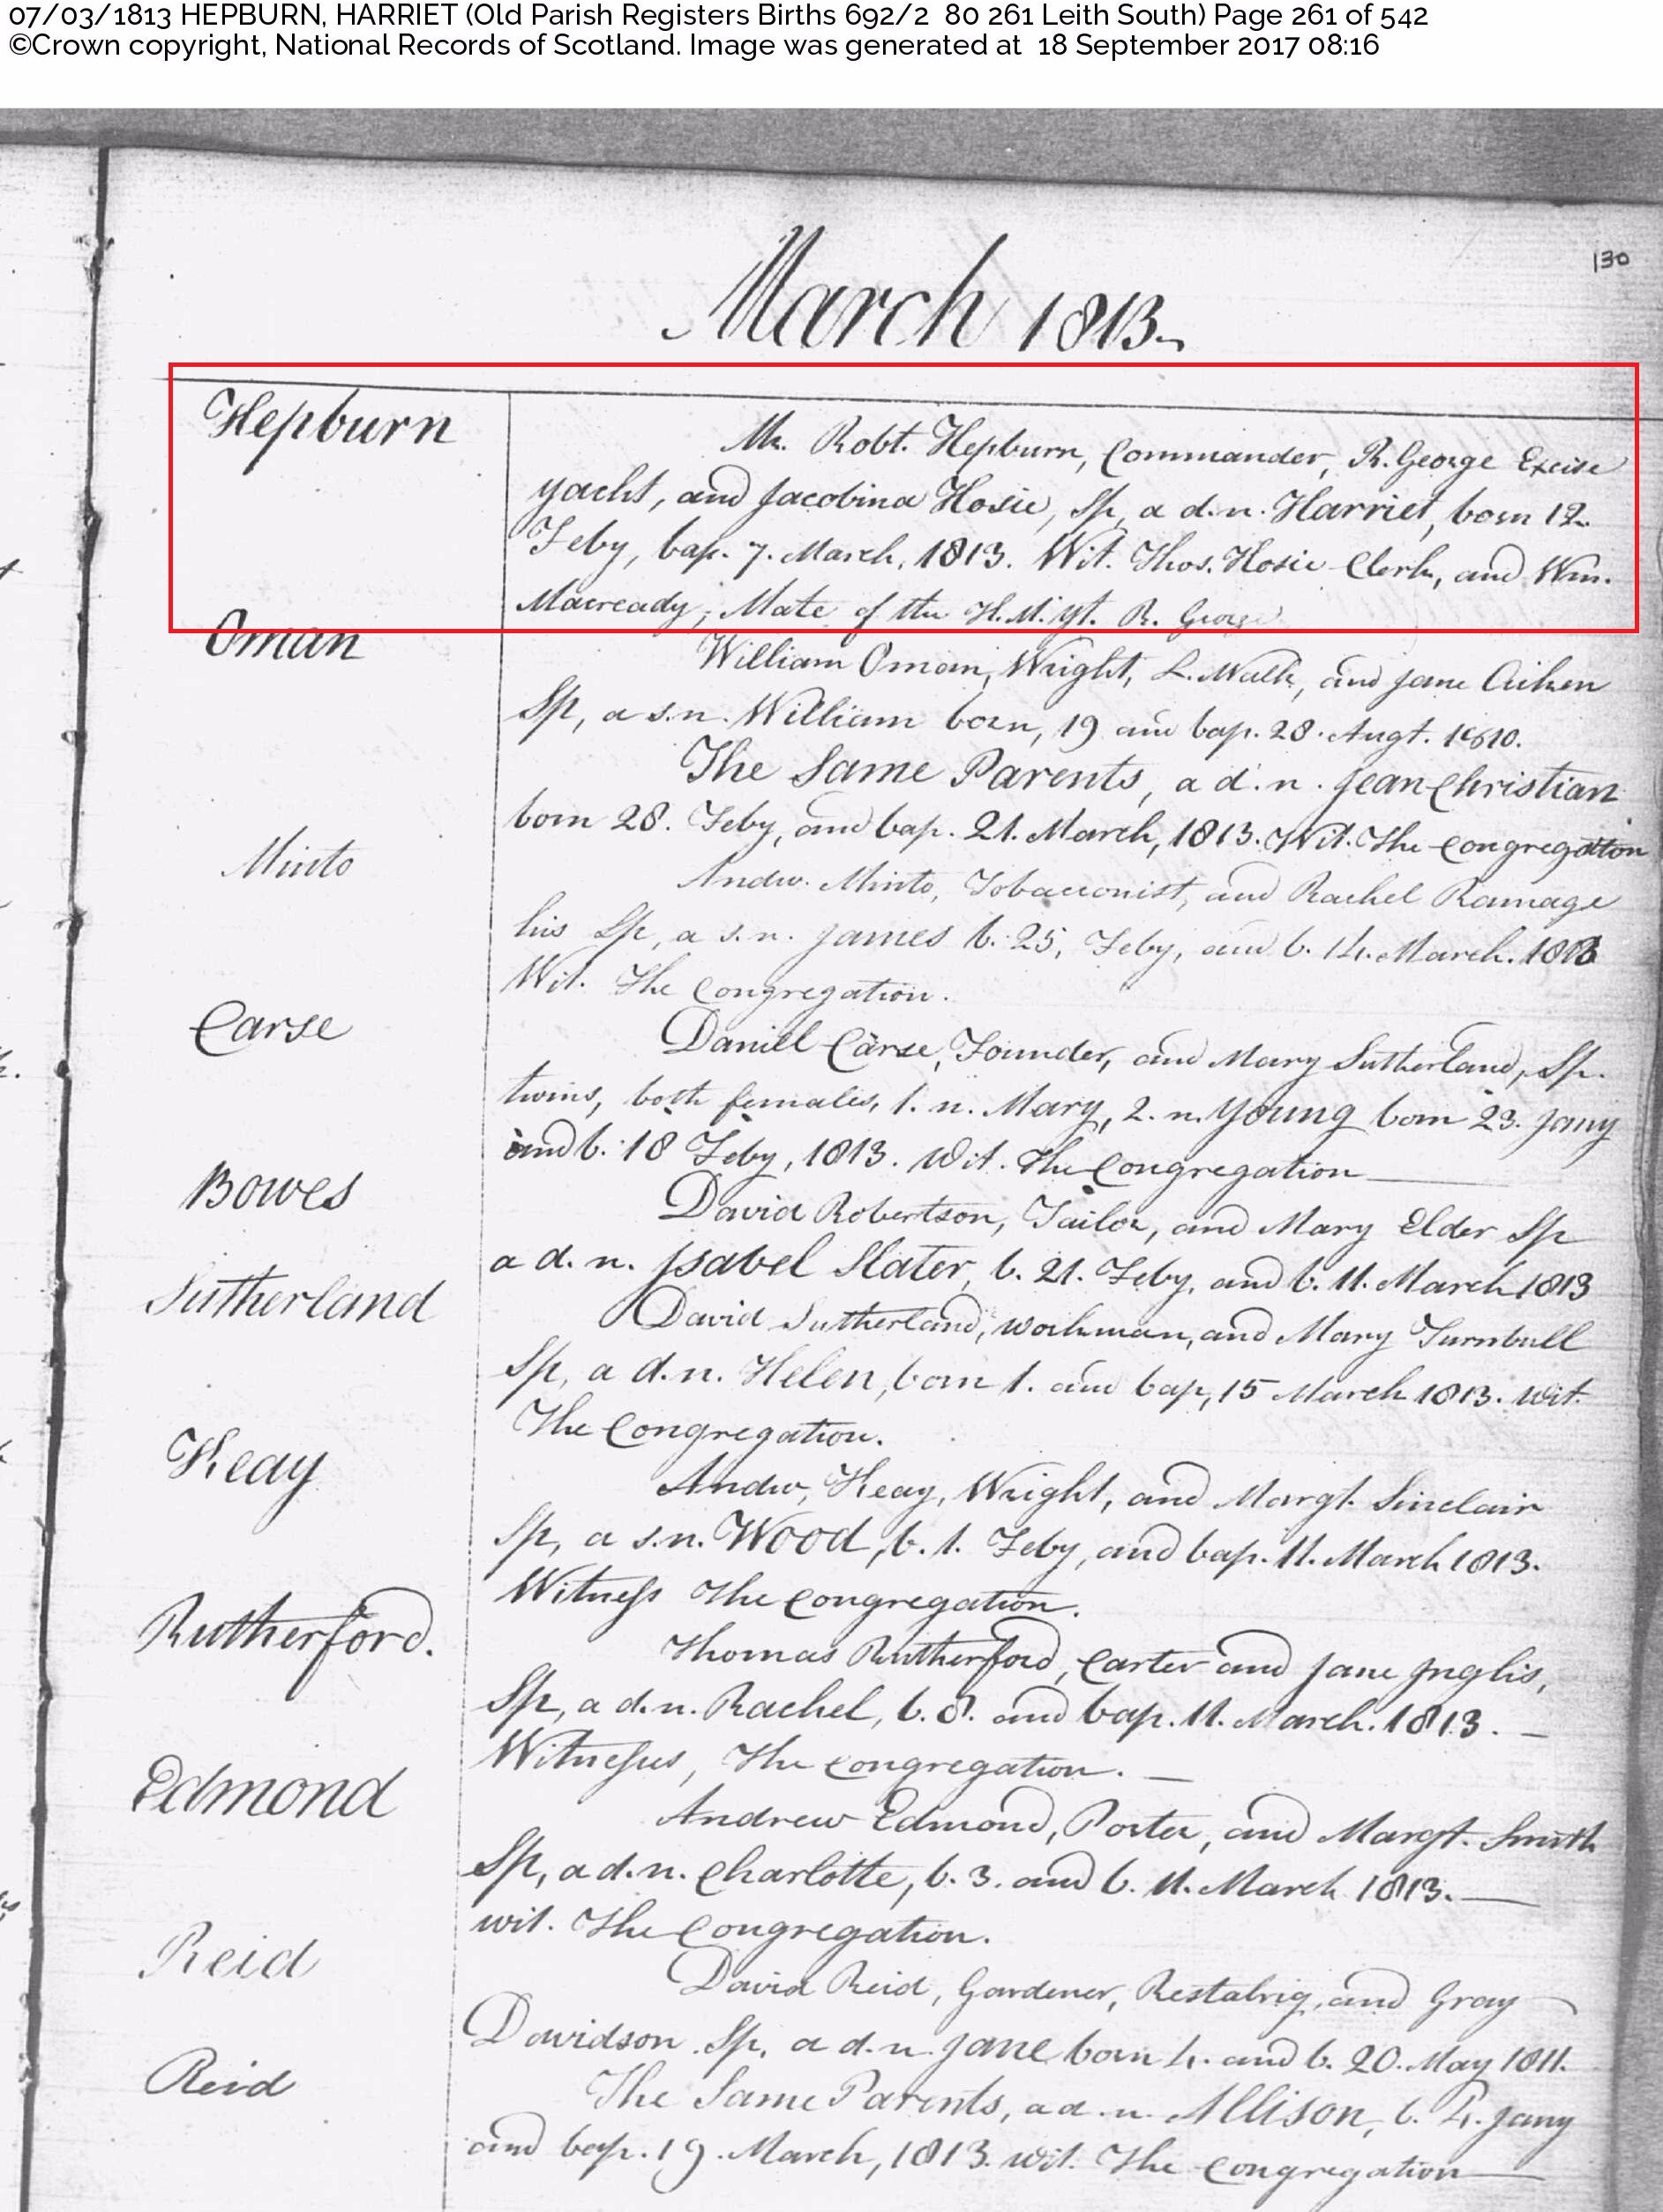 07/03/1813 HEPBURN, HARRIET (Old Parish Registers Births 692/2 80 261 Leith South) Page 261 of 542
©Crown copyright, National Records of Scotland. Image was generated at 18 September 2017 08:16
130
March 1813.
Hepburn
Mr. Robt. Hepburn, Commander, R. George Excise
yacht, and Jacobina Hosie, Sp, a d. n. Harriet, born 12
Feby, bap. 7. March, 1813. Wit. Thos. Hosie Clerk, and Wm.
Macready, Mate of the H. M. Yt. R. George
Oman
William Oman, Wright, L. Walk, and Jane Aitken
Sp, a s. n. William born, 19 and bap. 28. Augt. 1810.
The Same Parents, a d. n. Jean Christian
born 28. Feby, and bap. 21. March, 1813. Wit. The Congregation
Minto
Andw. Minto, Tobacconist, and Rachel Ramage
his Sp, a s. n. James b. 25, Feby, and b. 14. March. 1813
Wit. The Congregation.
Carse
Daniel Carse, Founder, and Mary Sutherland, Sp.
twins, both females, 1. n. Mary, 2. n. Young born 23. Jany
and b. 18 Feby, 1813. Wit. The Congregation
Bowes
David Robertson, Tailor, and Mary Elder Sp
a d. n. Isabel Slater, b. 21. Feby, and b. 11. March 1813
Sutherland
David Sutherland, workman, and Mary Turnbull
Sp, a d. n. Helen, born 1. and bap, 15 March 1813. wit.
The Congregation.
Keay
Andw, Keay, Wright, and Margt. Sinclair
Sp, a s. n. Wood, b. 1. Feby, and bap. 11. March 1813.
Witness The Congregation.
Rutherford.
Thomas Rutherford, Carter and Jane Inglis,
Sp, a d. n. Rachel, b. 8. and bap. 11. March. 1813. —
Witnesses, The Congregation. —
Edmond
Andrew Edmond, Porter, and Margt. Smith
Sp, a d. n. Charlotte, b. 3. and b. 11. March 1813. —
wit. The Congregation.
Reid
David Reid, Gardener, Restalrig, and Gray
Davidson Sp, a d. n. Jane born 4. and b. 20. May 1811.
Reid
The Same Parents, a d. n. Allison, b. 4. Jany
and bap. 19. March, 1813. wit. The Congregation